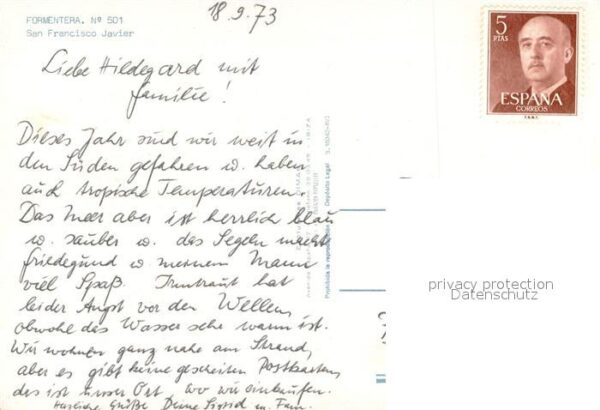 FORMENTERA. Nº 501
San Francisco Javier
18.9.73
5
PTAS
ESPAÑA
CORREOS
Liebe Hildegard mit
Familie!
Dieses Jahr sind wir weit in
den Süden gefahren u. haben
auch tropische Temperaturen.
Das Meer aber ist herrlich blau
u. sauber u. das Segeln macht
Friedegund u. meinem Mann
viel Spaß. Irmtraut hat
leider Angst vor den Wellen,
obwohl das Wasser sehr warm ist.
Wir wohnen ganz nahe am Strand,
aber es gibt keine gescheiten Postkarten,
das ist unser Ort, wo wir einkaufen.
Herzliche Grüße Deine u. Fam.
Prohibida la reproducción
Depósito Legal
privacy protection
Datenschutz